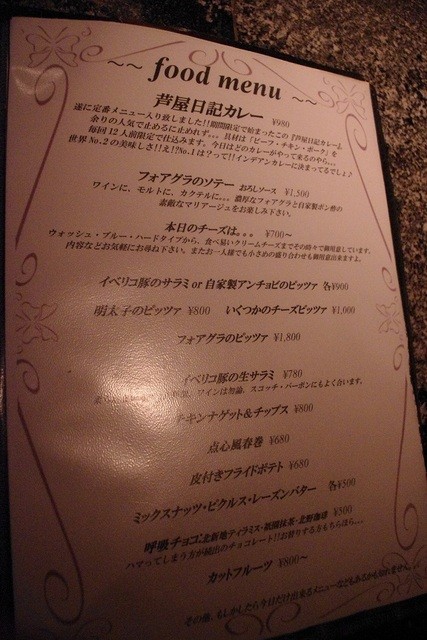 ~~ food menu ~~
芦屋日記カレー ¥980
遂に定番メニュー入り致しました!!期間限定で始まったこの『芦屋日記カレー』。
余りの人気で止めるに止めれず。。。具材は「ビーフ・チキン・ポーク」を
毎回12人前限定で仕込みます。今日はどのカレーがやって来るのやら。。。
世界No.2の美味しさ!!え!?No.1は?って!!インデアンカレーに決まってるでしょ♪
フォアグラのソテー おろしソース ¥1,500
ワインに、モルトに、カクテルに。。。濃厚なフォアグラと自家製ポン酢の
素敵なマリアージュをお楽しみ下さい。
本日のチーズは。。。 ¥700～
ウォッシュ・ブルー・ハードタイプから、食べ易いクリームチーズまでその時々で御用意しています。
内容などお気軽にお尋ね下さい。またお一人様でも小さめの盛り合わせも御用意出来ますよ。
イベリコ豚のサラミ or 自家製アンチョビのピッツァ 各¥900
明太子のピッツァ ¥800 いくつかのチーズピッツァ ¥1,000
フォアグラのピッツァ ¥1,800
イベリコ豚の生サラミ ¥780
ワインは勿論、スコッチ・バーボンにもよく合います。
チキンナゲット&チップス ¥800
点心風春巻 ¥680
皮付きフライドポテト ¥680
ミックスナッツ・ピクルス・レーズンバター 各¥500
呼吸チョコ:北新地ティラミス・祇園抹茶・北野珈琲 ¥500
ハマってしまう方が続出のチョコレート!!お替りする方もちらほら。。。
カットフルーツ ¥800～
その他、もしかしたら今日だけ出来るメニューなどもあるかも知れません。。。